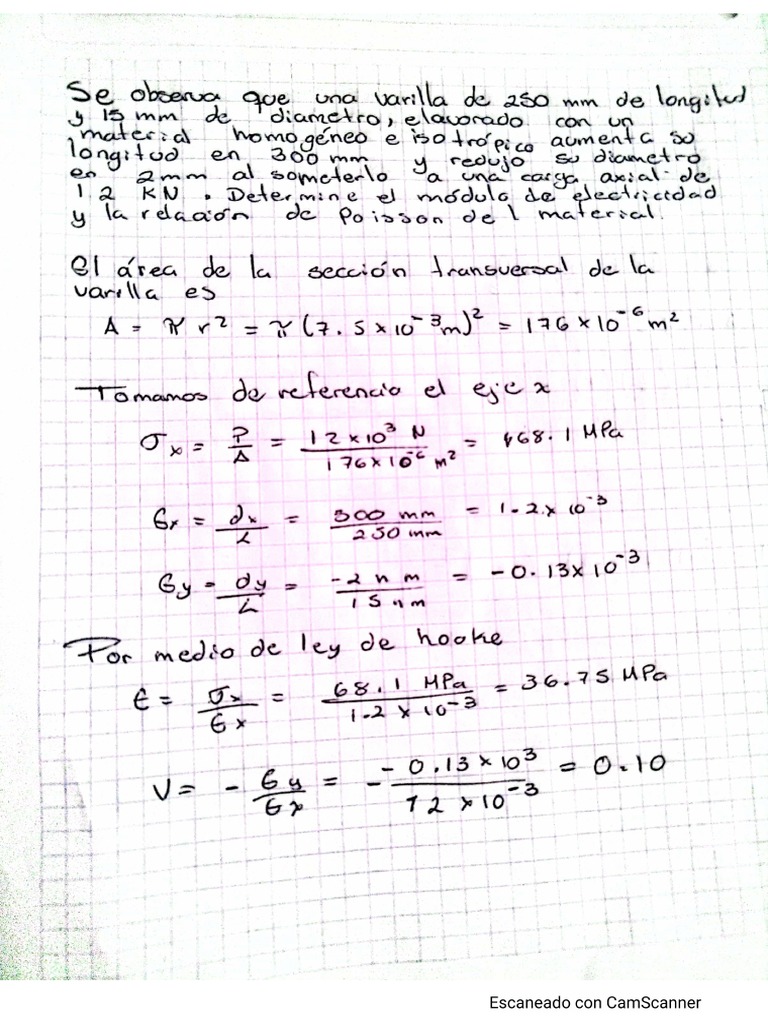 Se observa que una varilla de 250 mm de longitud
y 15 mm de diametro, elavorado con un
material homogéneo e isotrópico aumenta su
longitud en 300 mm y redujo su diametro
en 2mm al someterlo a una carga axial de
12 KN. Determine el módulo de electricidad
y la relación de Poisson del material.
El área de la sección transversal de la
varilla es
A = π r² = π (7.5 x 10⁻³m)² = 176 x 10⁻⁶ m²
Tomamos de referencia el eje x
σx = P/A = 12 x 10³ N / 176 x 10⁻⁶ m² = 68.1 MPa
ϵx = dx/L = 300 mm / 250 mm = 1.2 x 10⁻³
ϵy = dy/L = -2 m m / 15 mm = -0.13x10⁻³
Por medio de ley de hooke
E = σx/ϵx = 68.1 MPa / 1.2 x 10⁻³ = 36.75 MPa
V = - ϵy/ϵx = - -0.13 x 10³ / 12 x 10⁻³ = 0.10
Escaneado con CamScanner